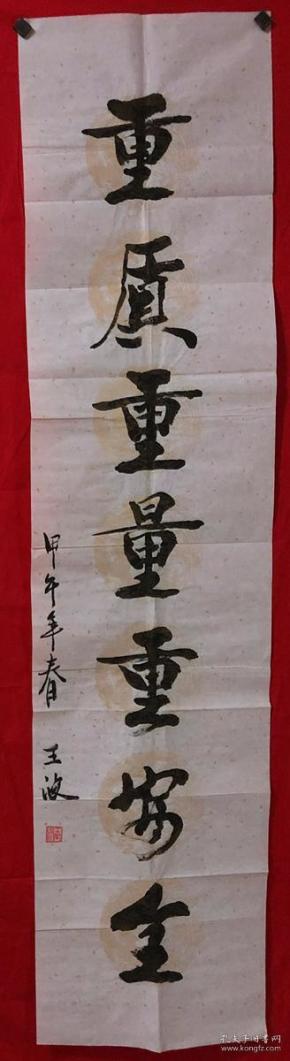 重质重量重安全
甲午年春
王波
孔夫子旧书网
www.kongfz.com